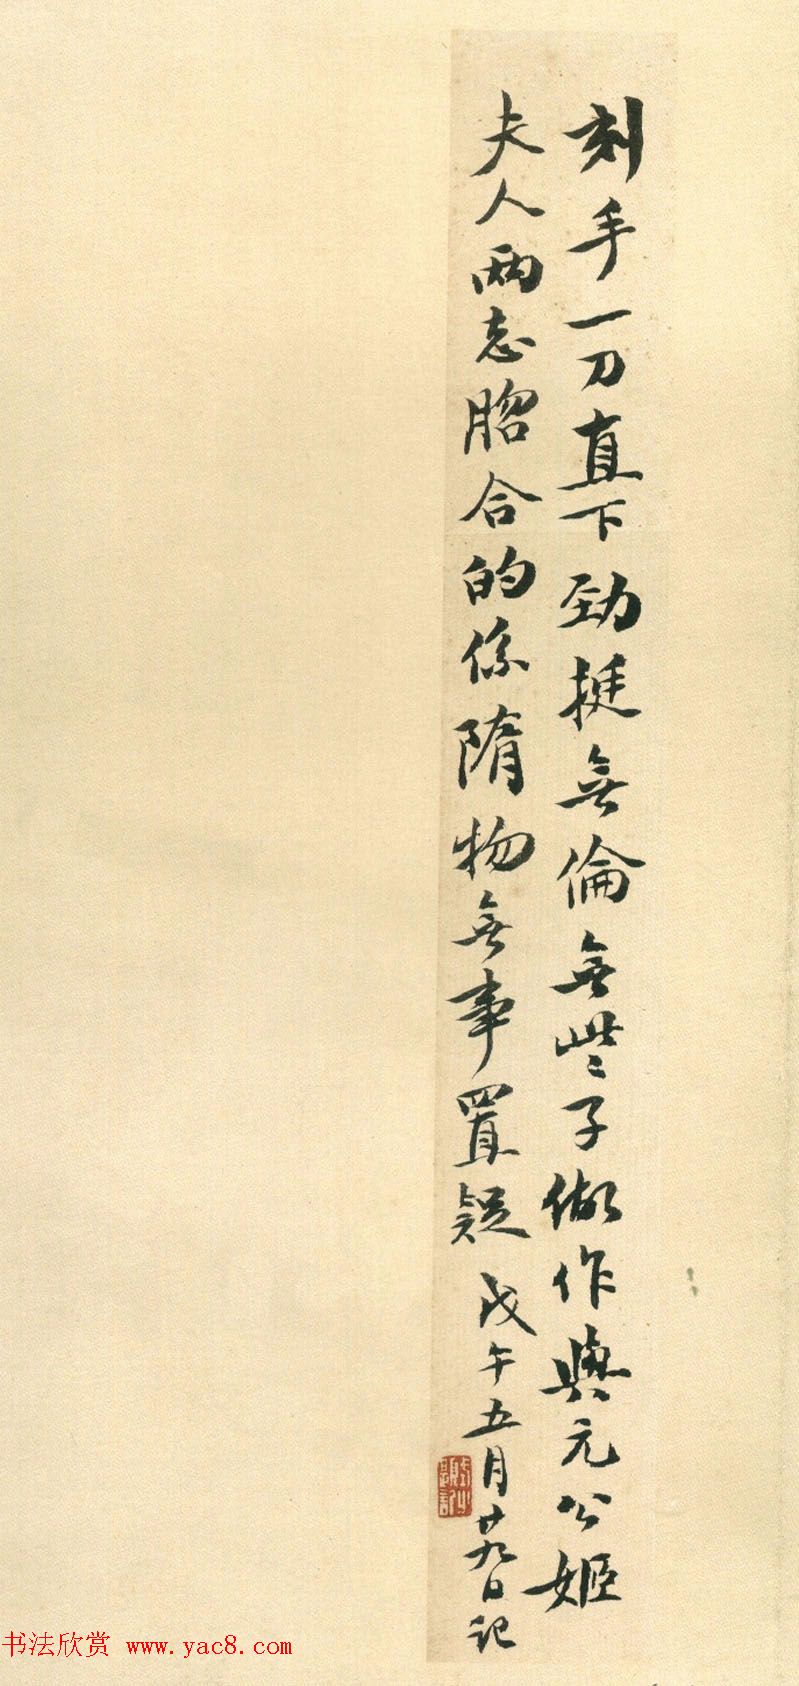 刻手一刀直下勁挺無倫無些子做作與元公姬
夫人兩志脗合的係隋物無事置疑 戊午五月廿九日記
书法欣赏 www.yac8.com